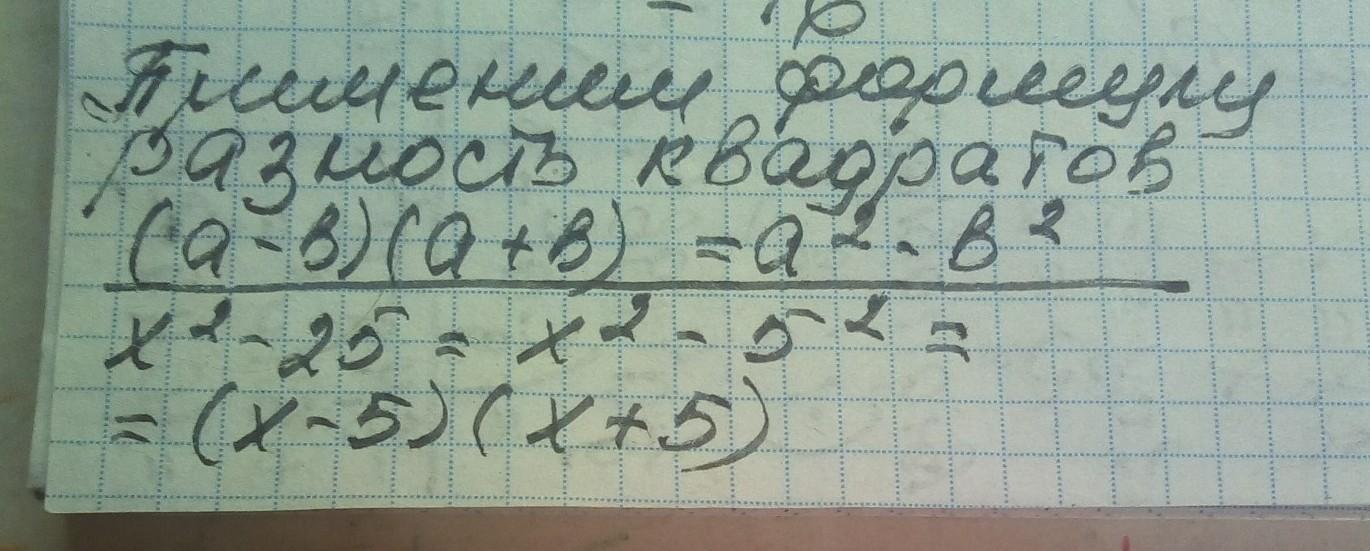 Применим формулу
разность квадратов
(а-в)(а+в) =а²-в²
х²-25=х²-5²=
=(х-5)(х+5)